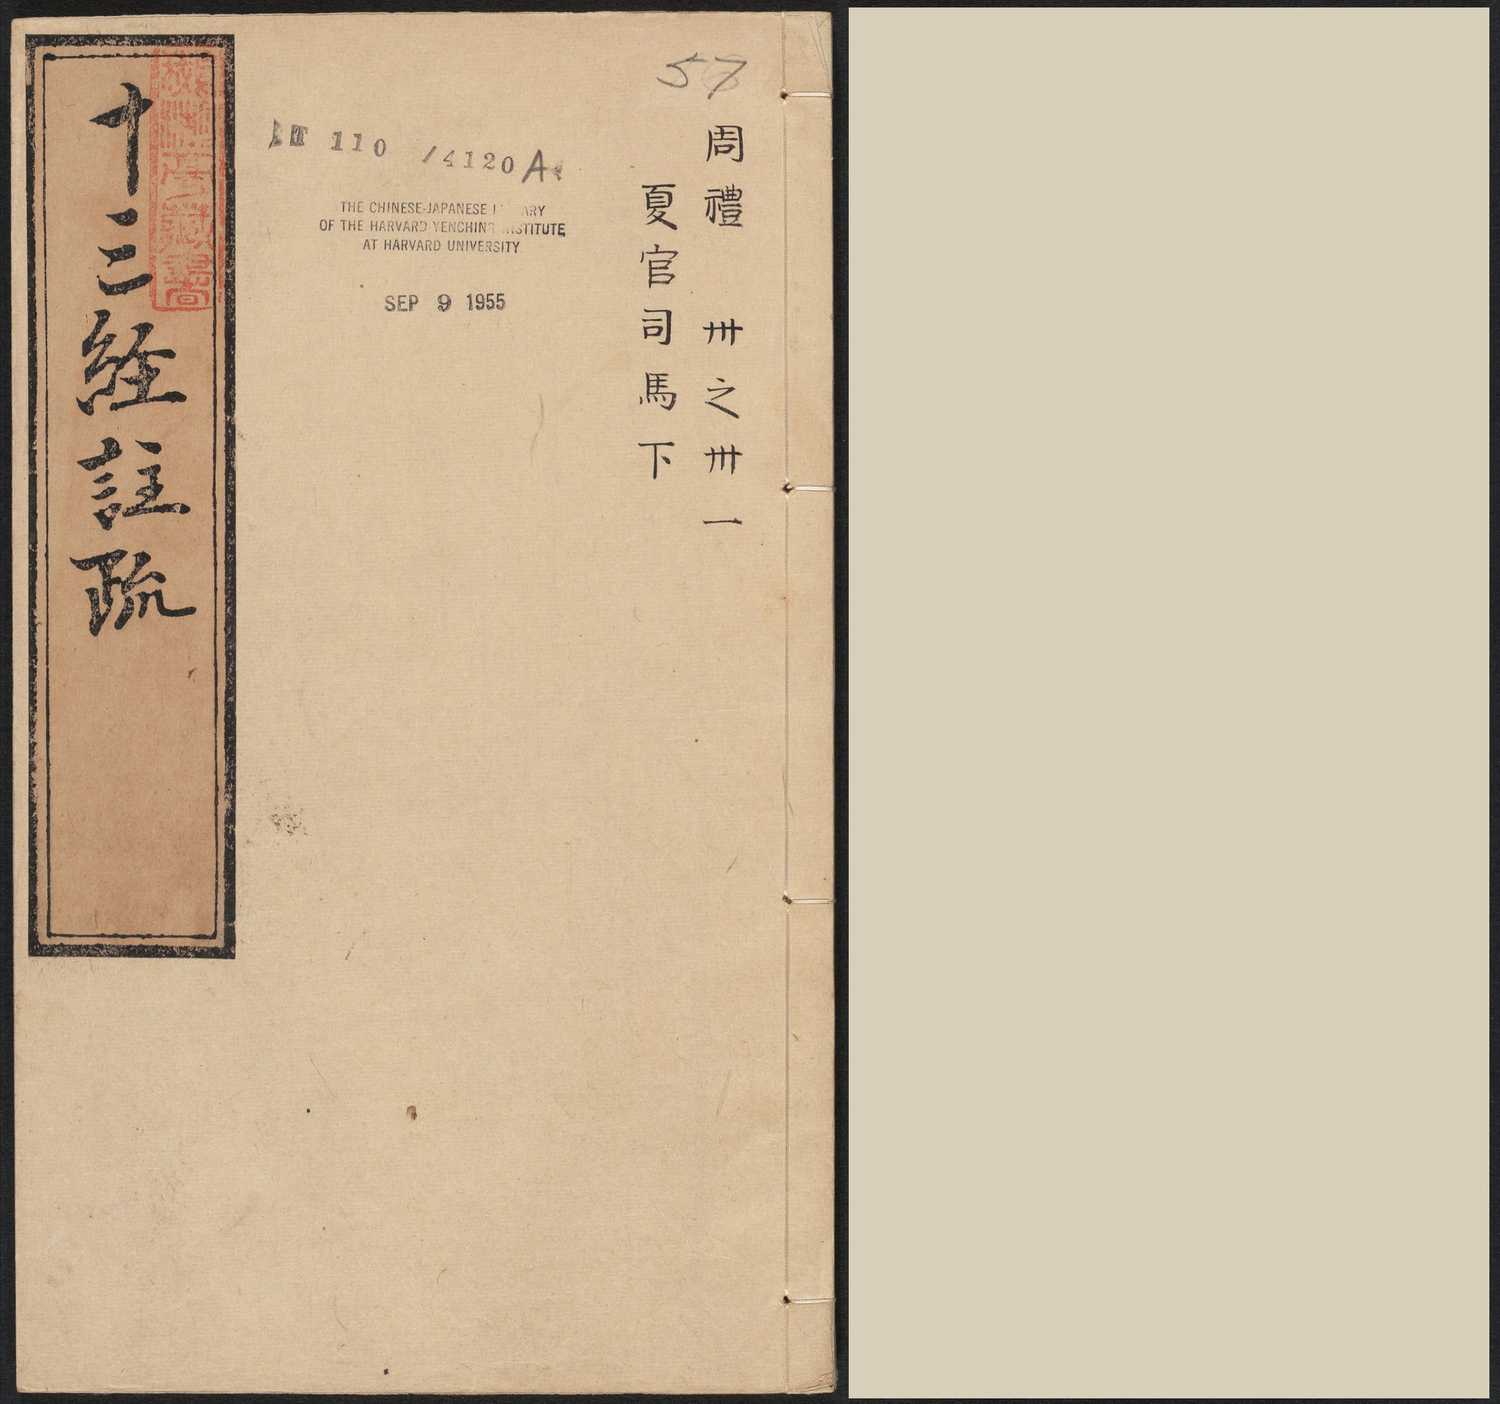 57
周禮 卅之卅一
夏官司馬下
T 110 /4120 A
THE CHINESE-JAPANESE
OF THE HARVARD-YENCHING INSTITUTE
AT HARVARD UNIVERSITY
SEP 9 1955
十三経註疏